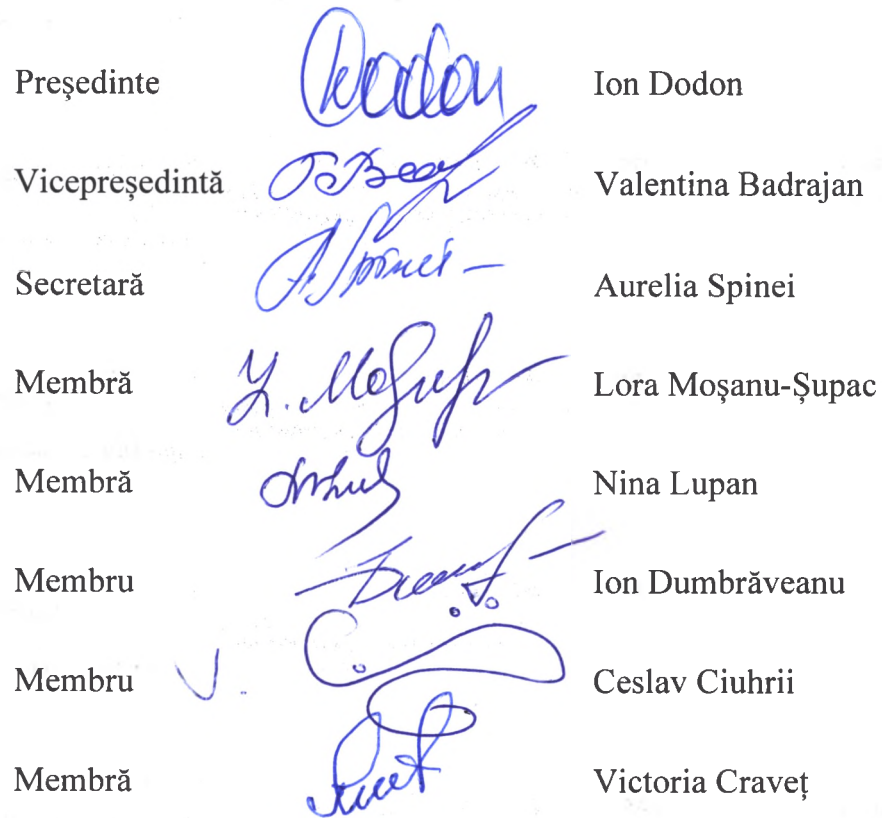 Președinte Dodon Ion Dodon
Vicepreședintă Valentina Badrajan
Secretară A Spinei Aurelia Spinei
Membră Lora Moșanu-Șupac
Membră Nina Lupan
Membru Ion Dumbrăveanu
Membru Ceslav Ciuhrii
Membră Victoria Craveț